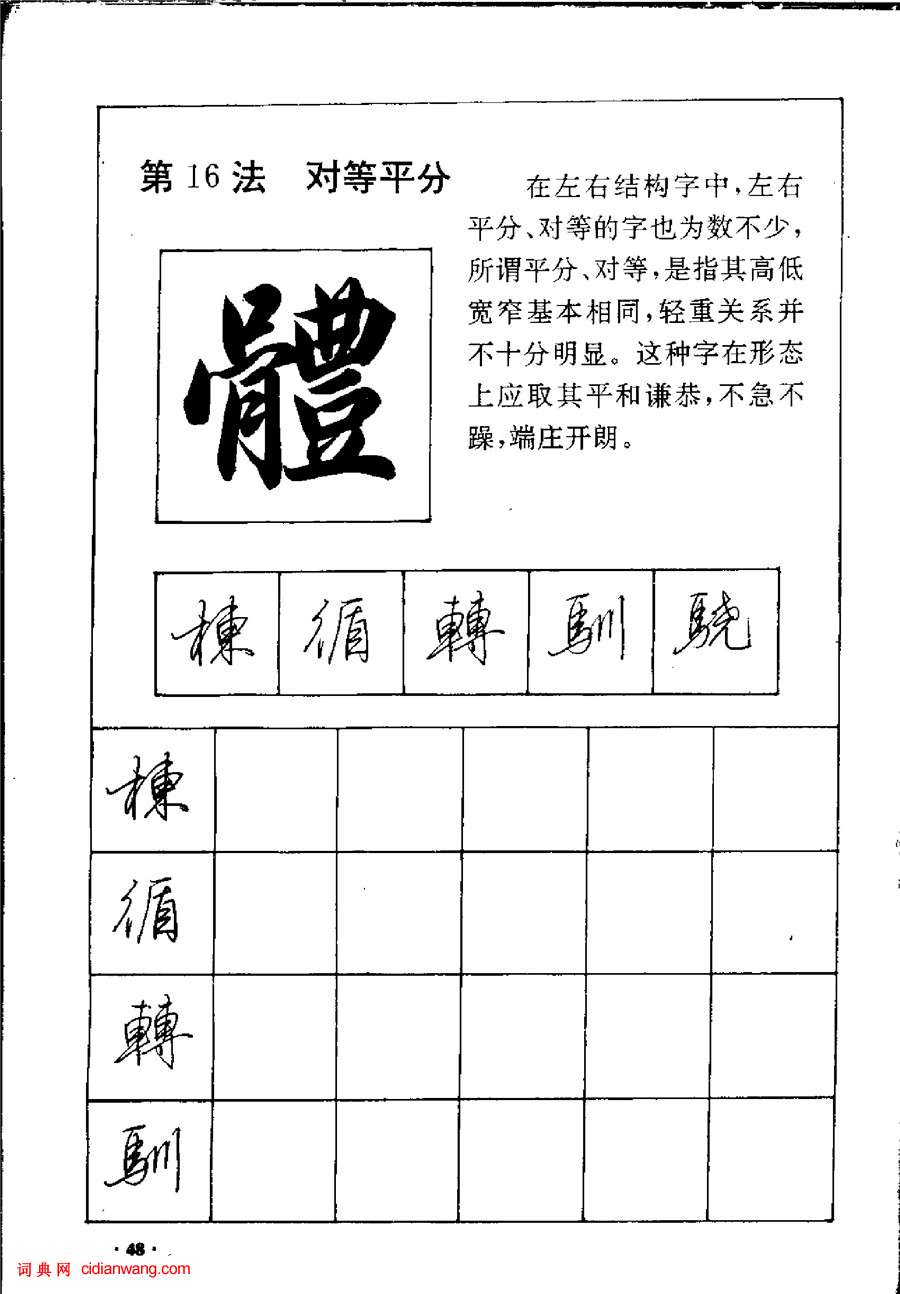 第16法 对等平分
在左右结构字中，左右
平分、对等的字也为数不少，
所谓平分、对等，是指其高低
宽窄基本相同，轻重关系并
不十分明显。这种字在形态
上应取其平和谦恭，不急不
躁，端庄开朗。
體
棟 循 轉 馴 驍
棟
循
轉
馴
·48·
词典网 cidianwang.com